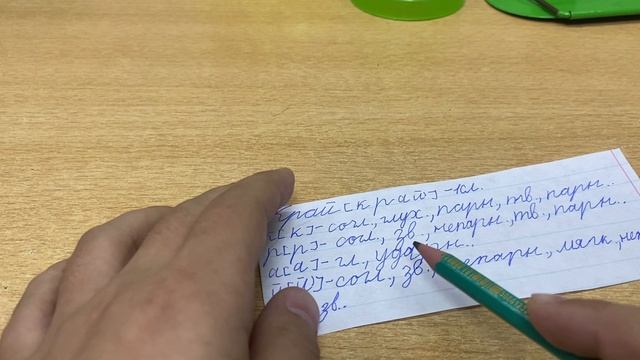 край [край] - 1сл.
к [к] - согл., глух., парн., тв., парн..
р [р] - согл., зв., непарн., тв., парн..
а [а] - гл., ударн..
й [й] - согл., зв., непарн., мягк., неп
зв..